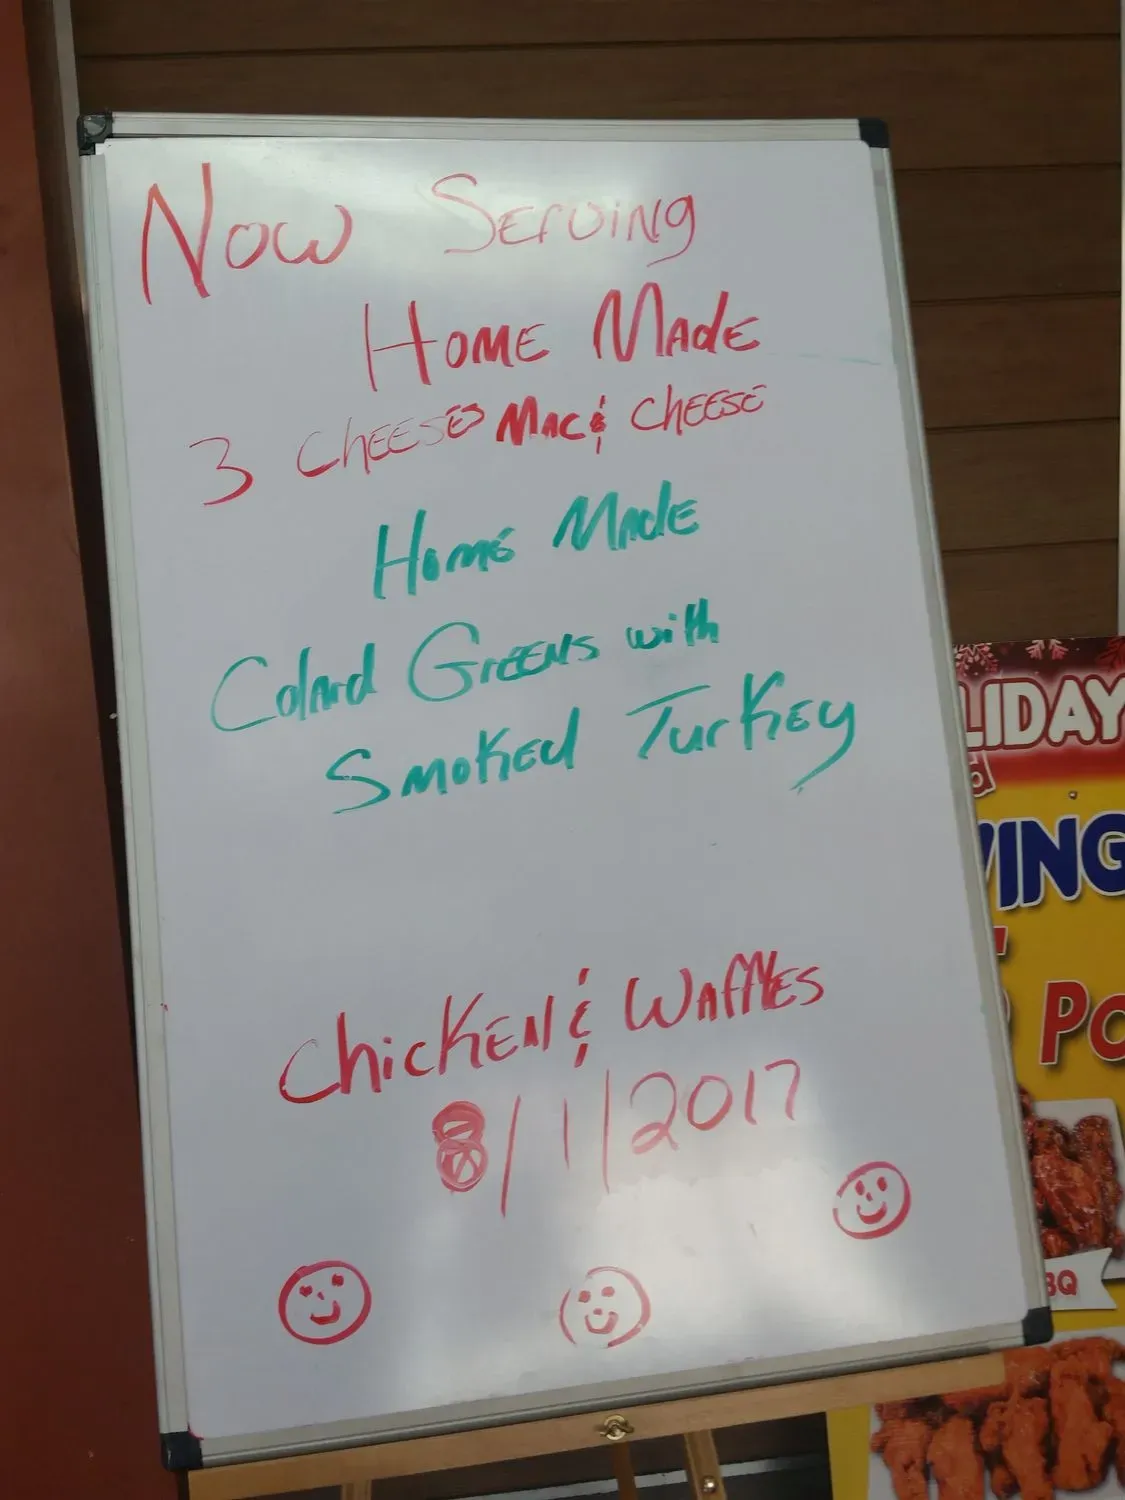 Now Serving
Home Made
3 Cheeses Mac & Cheese
Home Made
Colard Greens with
Smoked Turkey
Chicken & Waffles
8/1/2017
LIDAY
ING
PO
BQ